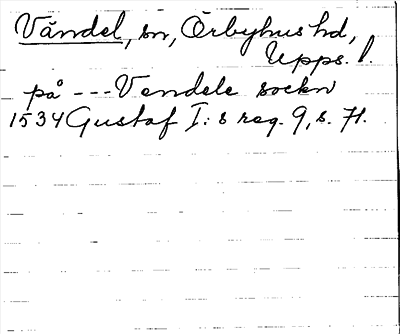 Vändel, sn, Örbyhus hd,
Upps. l.
på --- Vendele sockn
1534 Gustaf I: s reg. 9, s. 71.